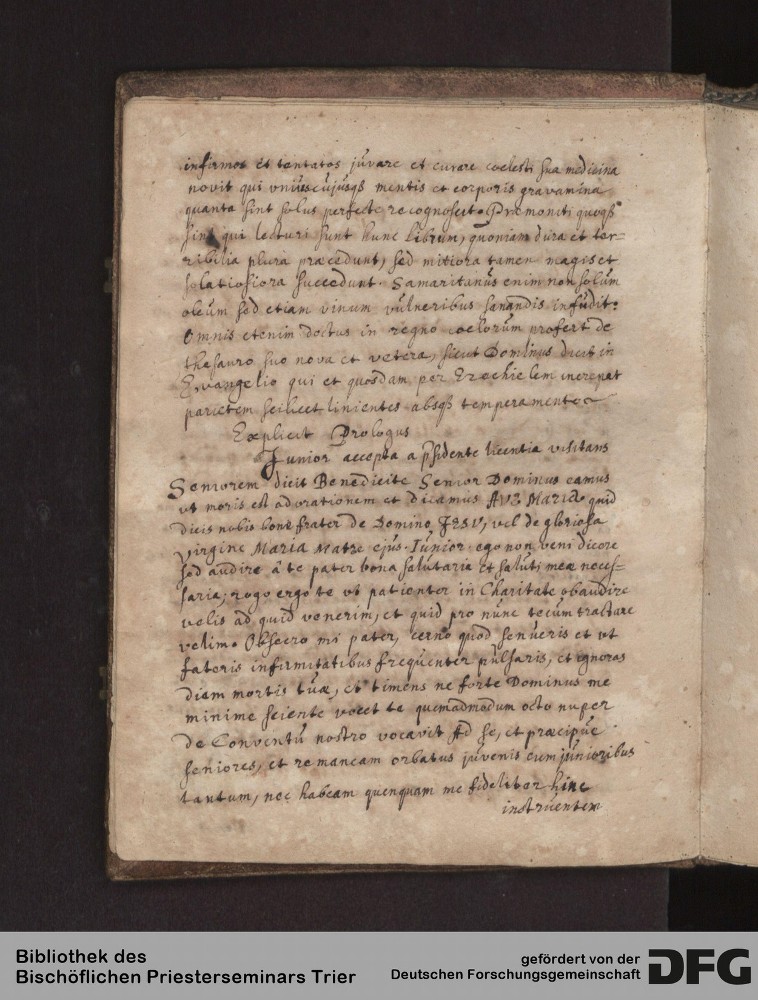 infirmos et tentatos juvare et curare coelesti sua medicina
novit qui uniuscujusqß mentis et corporis gravamina
quanta sint solus perfecte recognoscit. Præmoniti quoqß
sint qui lecturi sunt hunc Librum, quoniam dura et ter=
ribilia plura præcedunt, sed mitiora tamen magis et
solatiosiora succedunt. Samaritanus enim non solum
oleum sed etiam vinum vulneribus sanandis infudit.
Omnis etenim doctus in regno coelorum profert de
thesauro suo nova et vetera, sicut Dominus dicit in
Evangelio qui et quosdam per Ezechielem increpat
parietem scilicet linientes absqß temperamento
Explicit Prologus
Junior accepta a psidente licentia visitans
Seniorem dicit Benedicite Senior Dominus eamus
ut moris est ad orationem et dicamus AVE Maria quid
dicis nobis bone frater de Domino JESU, vel de gloriosa
virgine Maria Matre ejus. Junior. ego non veni dicere
sed audire â te pater bona salutaria et saluti meæ neces=
saria, rogo ergo te ut patienter in Charitate obaudire
velis ad quid venerim, et quid pro nunc tecum tractare
velim. Obsecro mi pater, cerno quod senueris et ut
fateris infirmitatibus frequenter pulsaris, et ignoras
diem mortis tuæ, et timens ne forte Dominus me
minime sciente vocet te quemadmodum octo nuper
de Conventu nostro vocavit Ad se, et præcipue
seniores, et remaneam orbatus juvenis cum junioribus
tantum, nec habeam quenquam me fideliter hinc
instruentem
Bibliothek des
Bischöflichen Priesterseminars Trier
gefördert von der
Deutschen Forschungsgemeinschaft
DFG